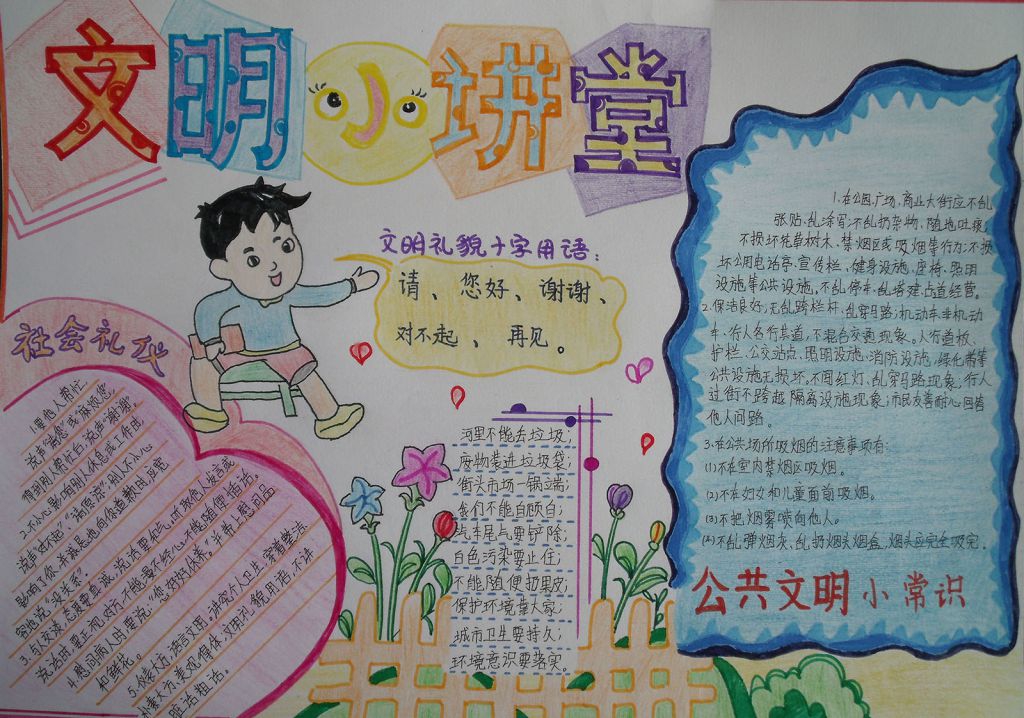 文明小讲堂
文明礼貌十字用语:
请、您好、谢谢、
对不起、再见。
社会礼仪
1.要他人帮忙,
说声“请您”或“麻烦您”,
得到别人帮忙后,说声“谢谢”。
2.不小心影响别人休息或工作时,
说声“对不起”“请原谅”,别人不小心
影响了你,未诚恳地向你道歉时,应宽
容他说“没关系”。
3.与人交谈,态度要真诚,说话要和气,听取他人发言或
说话时,要正视对方,不能漫不经心,不能随便插话。
4.慰问病人时,要说:“您好好休养。”并带上慰问品
和鲜花。
5.仪表大方,语言文明。讲究个人卫生,穿着整洁
朴素大方,美观得体,文明礼貌用语,不讲
脏话粗话。
河里不能去垃圾;
废物装进垃圾袋;
街头市场一锅端;
我们不能自顾自;
汽车尾气要铲除;
白色污染要止住;
不能随便扔果皮;
保护环境靠大家;
城市卫生要持久;
环境意识要落实。
1.在公园、广场、商业大街应不乱
张贴、乱涂写;不乱扔杂物、随地吐痰;
不损坏花草树木、禁烟区或吸烟等行为;不损
坏公用电话亭、宣传栏、健身设施、座椅、照明
设施等公共设施,不乱停车、乱搭建、占道经营。
2.保洁良好;无乱跨栏杆、乱穿马路;机动车非机动
车、行人各行其道,不混合交通现象。人行道板、
护栏、公交站点、照明设施、消防设施、绿化带等
公共设施无损坏。不闯红灯、乱穿马路现象;行人
过街不跨越隔离设施现象;市民友善耐心回答
他人问路。
3.在公共场所吸烟的注意事项有:
(1)不在室内禁烟区吸烟。
(2)不在妇女和儿童面前吸烟。
(3)不把烟雾喷向他人。
(4)不乱弹烟灰、乱扔烟头烟盒,烟头应完全吸完。
公共文明小常识